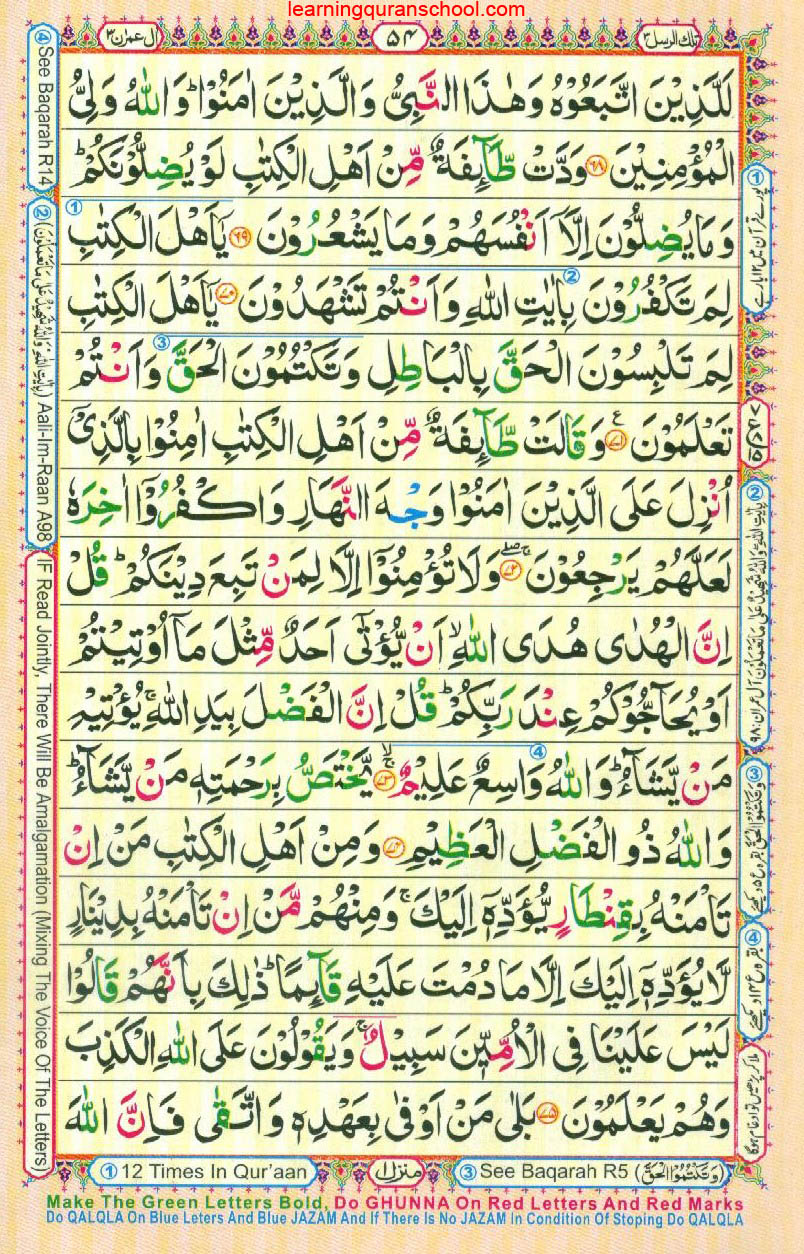 learningquranschool.com
تلك الرسل ٣
٥٤
ال عمرٰن ٣
لَلَّذِيْنَ اتَّبَعُوْهُ وَهٰذَا النَّبِىُّ وَالَّذِيْنَ اٰمَنُوْا ؕ وَاللّٰهُ وَلِىُّ
الْمُؤْمِنِيْنَ ۝۶۸ وَدَّتْ طَّآئِفَةٌ مِّنْ اَهْلِ الْكِتٰبِ لَوْ يُضِلُّوْنَكُمْ ؕ
وَمَا يُضِلُّوْنَ اِلَّاۤ اَنْفُسَهُمْ وَمَا يَشْعُرُوْنَ ۝۶۹ يٰۤاَهْلَ الْكِتٰبِ ①
لِمَ تَكْفُرُوْنَ بِاٰيٰتِ اللّٰهِ وَاَنْتُمْ تَشْهَدُوْنَ ۝۷۰ يٰۤاَهْلَ الْكِتٰبِ ②
لِمَ تَلْبِسُوْنَ الْحَقَّ بِالْبَاطِلِ وَتَكْتُمُوْنَ الْحَقَّ وَاَنْتُمْ ③
تَعْلَمُوْنَ ۝۷۱ ع وَقَالَتْ طَّآئِفَةٌ مِّنْ اَهْلِ الْكِتٰبِ اٰمِنُوْا بِالَّذِىْۤ
اُنْزِلَ عَلَى الَّذِيْنَ اٰمَنُوْا وَجْهَ النَّهَارِ وَاكْفُرُوْۤا اٰخِرَهٗ
لَعَلَّهُمْ يَرْجِعُوْنَ ۝۷۲ وَلَا تُؤْمِنُوْۤا اِلَّا لِمَنْ تَبِعَ دِيْنَكُمْ ؕ قُلْ
اِنَّ الْهُدٰى هُدَى اللّٰهِ ۙ اَنْ يُّؤْتٰٓى اَحَدٌ مِّثْلَ مَاۤ اُوْتِيْتُمْ
اَوْ يُحَآجُّوْكُمْ عِنْدَ رَبِّكُمْ ؕ قُلْ اِنَّ الْفَضْلَ بِيَدِ اللّٰهِ ۚ يُؤْتِيْهِ
مَنْ يَّشَآءُ ؕ وَاللّٰهُ وَاسِعٌ عَلِيْمٌ ۝۷۳ يَّخْتَصُّ بِرَحْمَتِهٖ مَنْ يَّشَآءُ ؕ ④
وَاللّٰهُ ذُو الْفَضْلِ الْعَظِيْمِ ۝۷۴ وَمِنْ اَهْلِ الْكِتٰبِ مَنْ اِنْ
تَاْمَنْهُ بِقِنْطَارٍ يُّؤَدِّهٖۤ اِلَيْكَ ۚ وَمِنْهُمْ مَّنْ اِنْ تَاْمَنْهُ بِدِيْنَارٍ
لَّا يُؤَدِّهٖۤ اِلَيْكَ اِلَّا مَا دُمْتَ عَلَيْهِ قَآئِمًا ؕ ذٰلِكَ بِاَنَّهُمْ قَالُوْا
لَيْسَ عَلَيْنَا فِى الْاُمِّيّٖنَ سَبِيْلٌ ۚ وَيَقُوْلُوْنَ عَلَى اللّٰهِ الْكَذِبَ
وَهُمْ يَعْلَمُوْنَ ۝۷۵ بَلٰى مَنْ اَوْفٰى بِعَهْدِهٖ وَاتَّقٰى فَاِنَّ اللّٰهَ
① پورے قرآن میں ۱۲ بار ہے
② بِاٰيٰتِ اللّٰهِ وَاللّٰهُ شَهِيْدٌ عَلٰى مَا تَعْمَلُوْنَ آل عمران: ۹۸
③ وَتَكْتُمُوا الْحَقَّ بقرہ ع ۵ دیکھئے
④ بقرہ ع ۱۴ دیکھئے
ملا کر پڑھیں تو ادغام ہوگا
④ See Baqarah R14
② (بِاٰيٰتِ اللّٰهِ وَاللّٰهُ شَهِيْدٌ عَلٰى مَا تَعْمَلُوْنَ) Aali-Im-Raan A98
IF Read Jointly, There Will Be Amalgamation (Mixing The Voice Of The Letters)
① 12 Times In Qur'aan
منزل ١
③ See Baqarah R5 (وَتَكْتُمُوا الْحَقَّ)
Make The Green Letters Bold, Do GHUNNA On Red Letters And Red Marks
Do QALQLA On Blue Leters And Blue JAZAM And If There Is No JAZAM In Condition Of Stoping Do QALQLA